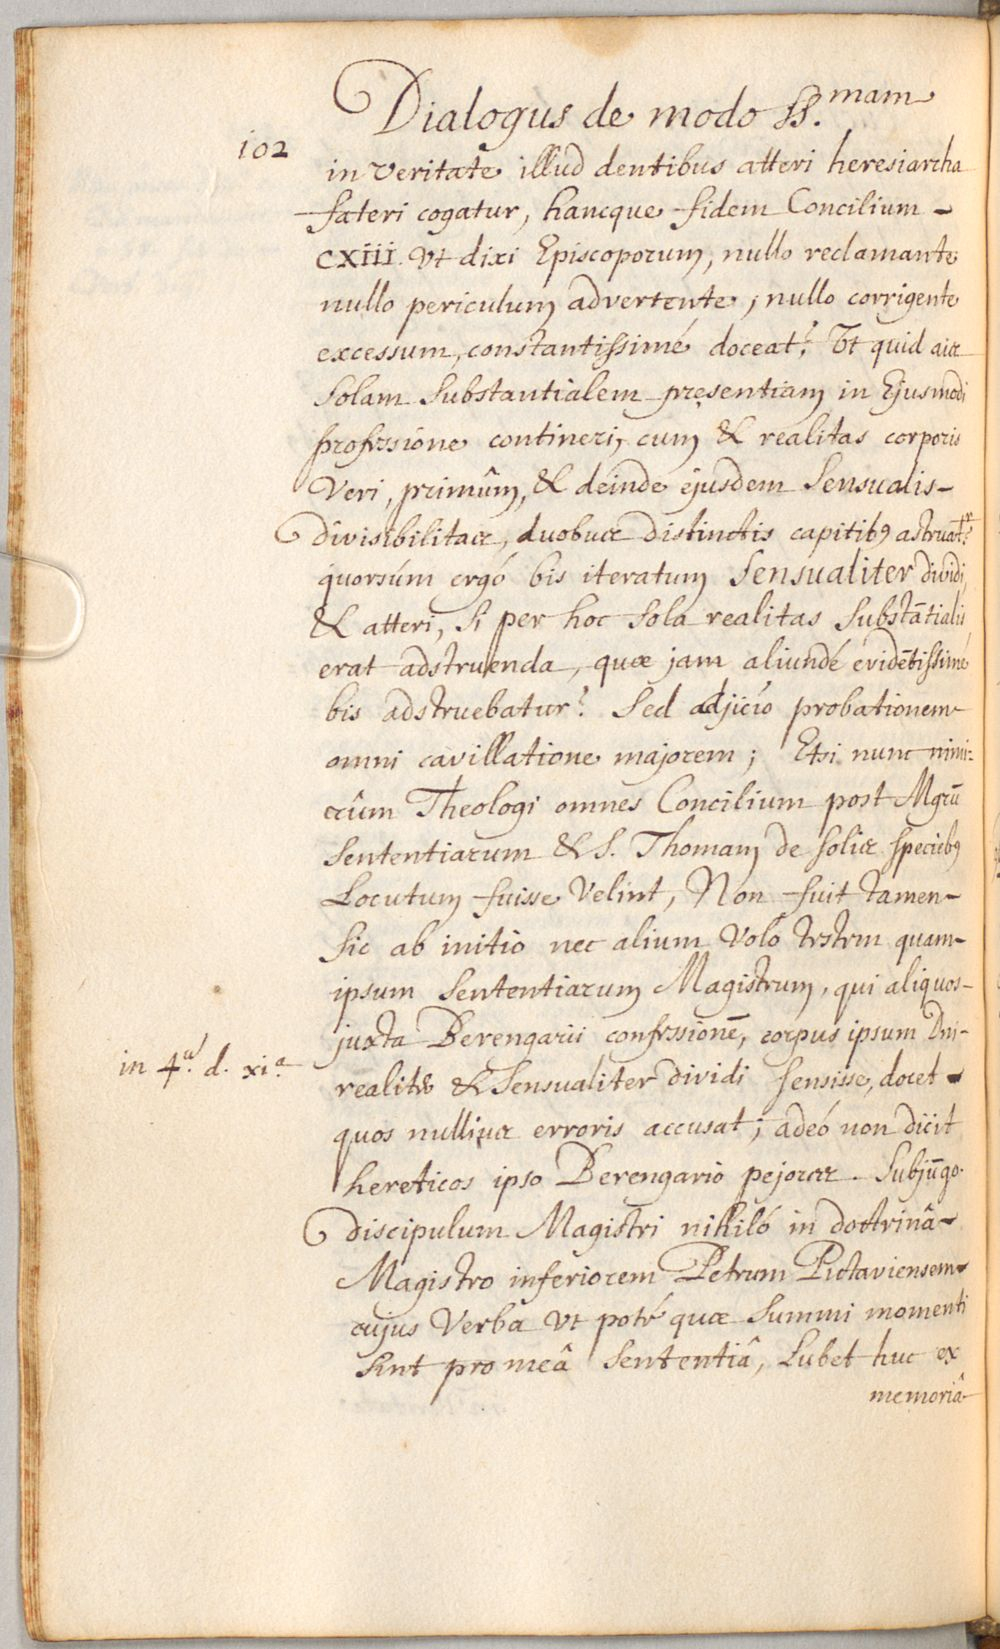 Dialogus de modo SS.mam
102
in veritate illud dentibus atteri heresiarcha
fateri cogatur, hancque fidem Concilium -
CXIII. Vt dixi Episcoporum, nullo reclamante
nullo periculum advertente, nullo corrigente
excessum, constantissimé doceat? Vt quid ais
solam substantialem pręsentiam in Ejusmodi
professione contineri, cum & realitas corporis
veri, primûm, & deinde ejusdem sensualis -
divisibilitas, duobus distinctis capitib9 astruat.r?
quorsúm ergó bis iteratum sensualiter dividi,
& atteri, si per hoc sola realitas substātialis
erat adstruenda, quæ jam aliundé evidētissimé
bis adstruebatur? Sed adjicio probationem
omni cavillatione majorem; Etsi nunc nimi-
rûm Theologi omnes Concilium post Mgrū
sententiarum & S. Thomam de solis specieb9
Locutum fuisse velint, Non fuit tamen -
sic ab initio nec alium volo testem quam -
ipsum sententiarum Magistrum, qui aliquos -
juxta Berengarii confessionē, corpus ipsum Dni -
realitr & sensualiter dividi sensisse, docet -
in 4.a d. xi.a
quos nullius erroris accusat; adeó non dicit
hereticos ipso Berengario pejores. Subjūgo
discipulum Magistri nihiló in doctrinâ -
Magistro inferiorem Petrum Pictaviensem -
cujus verba ut poté quæ summi momenti
sint pro meâ sententiâ, Lubet huc ex
memoriâ